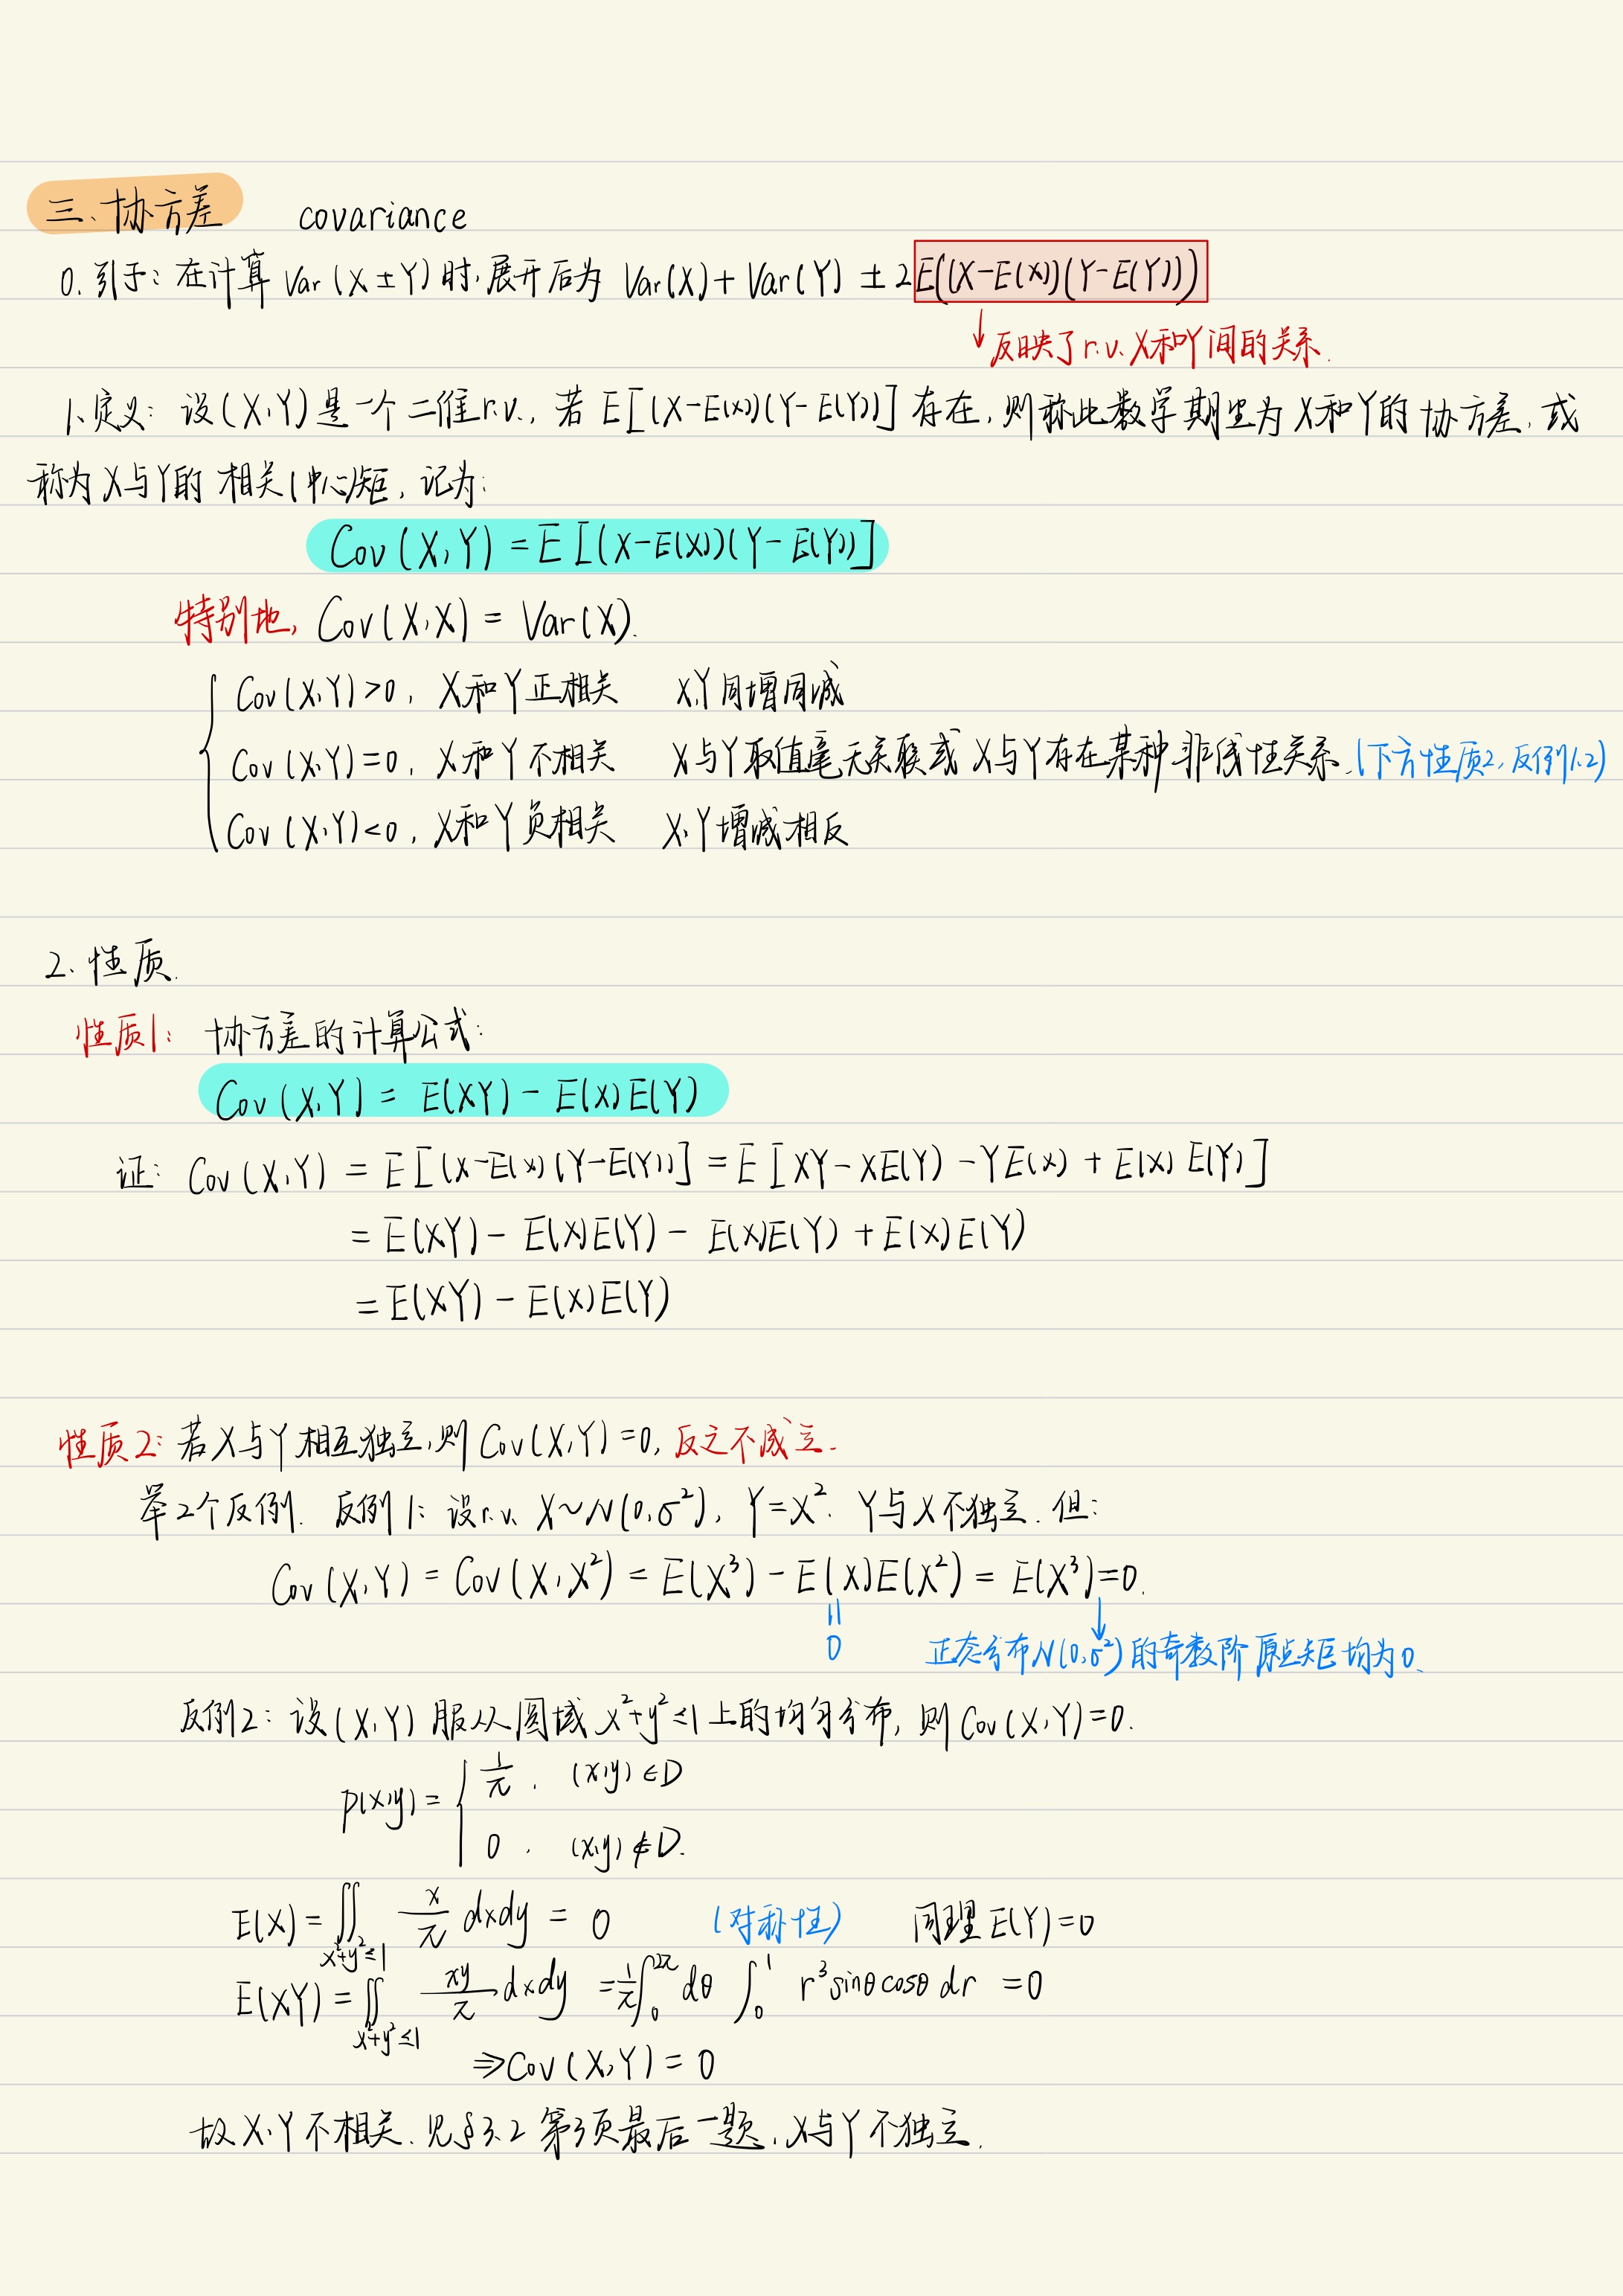 三、协方差 covariance
0. 引子：在计算 Var(X±Y)时，展开后为 Var(X)+Var(Y)±2E((X-E(X))(Y-E(Y)))
↓反映了r.v. X和Y间的关系.
1. 定义：设(X,Y)是一个二维r.v.，若 E[(X-E(X))(Y-E(Y))] 存在，则称此数学期望为X和Y的协方差，或
称为X与Y的相关(中心)矩，记为：
Cov(X,Y)=E[(X-E(X))(Y-E(Y))]
特别地，Cov(X,X)=Var(X).
Cov(X,Y)>0，X和Y正相关 X,Y同增同减
Cov(X,Y)=0，X和Y不相关 X与Y取值毫无关联或X与Y存在某种非线性关系.(下方性质2，反例1,2)
Cov(X,Y)<0，X和Y负相关 X,Y增减相反
2. 性质.
性质1：协方差的计算公式：
Cov(X,Y)=E(XY)-E(X)E(Y)
证：Cov(X,Y)=E[(X-E(X)(Y-E(Y))]=E[XY-XE(Y)-YE(X)+E(X)E(Y)]
=E(XY)-E(X)E(Y)-E(X)E(Y)+E(X)E(Y)
=E(XY)-E(X)E(Y)
性质2：若X与Y相互独立，则Cov(X,Y)=0，反之不成立.
举2个反例. 反例1：设r.v. X~N(0,σ²)，Y=X². Y与X不独立. 但：
Cov(X,Y)=Cov(X,X²)=E(X³)-E(X)E(X²)=E(X³)=0.
=0 ↓正态分布N(0,σ²)的奇数阶原点矩均为0.
反例2：设(X,Y)服从圆域x²+y²≤1上的均匀分布，则Cov(X,Y)=0.
p(x,y)={ 1/π, (x,y)∈D
0, (x,y)∉D.
E(X)=∬_{x²+y²≤1} x/π dxdy = 0 (对称性) 同理E(Y)=0
E(XY)=∬_{x²+y²≤1} xy/π dxdy = 1/π ∫₀^{2π} dθ ∫₀¹ r³sinθcosθ dr = 0
⇒Cov(X,Y)=0
故X,Y不相关. 见§3.2第3页最后一题，X与Y不独立.